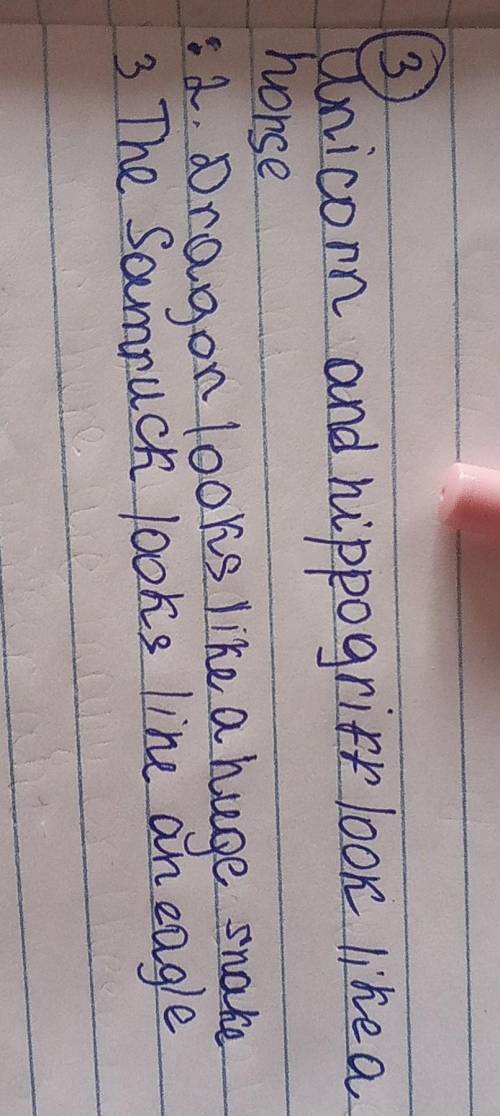 ③
Unicorn and hippogriff look like a
horse
: 2. Dragon looks like a huge snake
3 The Samruck looks like an eagle